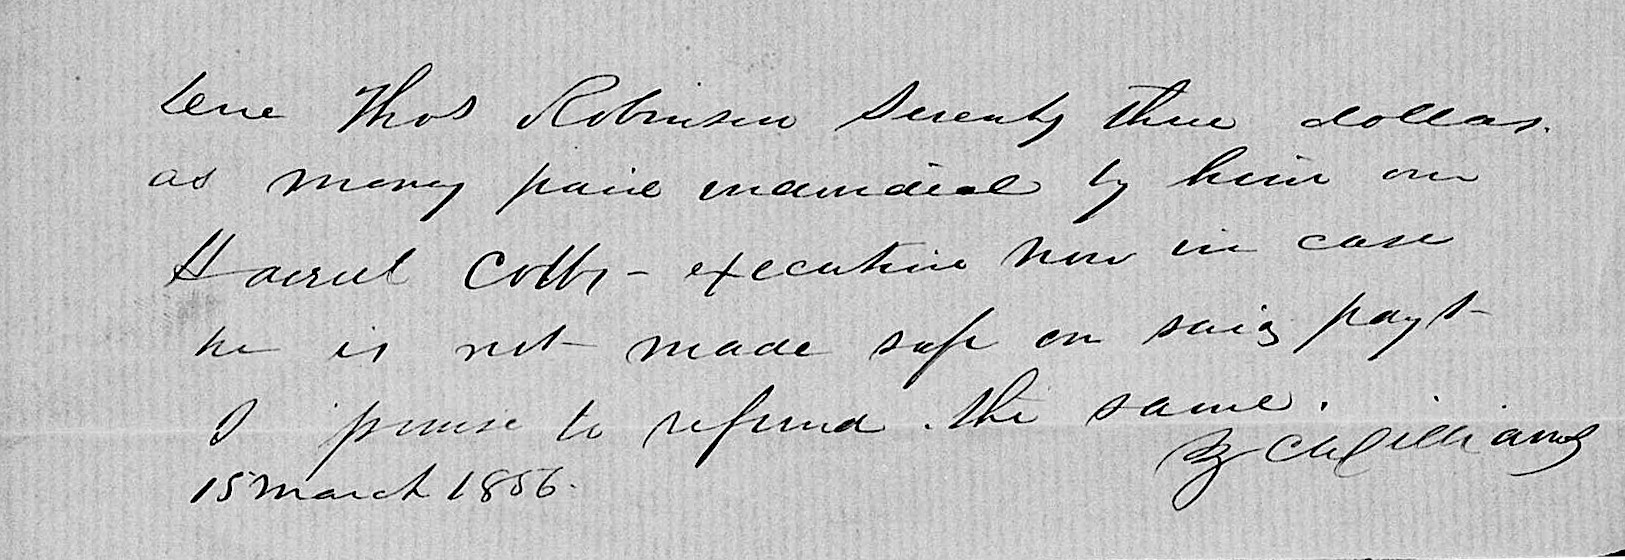 Thos Robinson Seventy three dollars.
as money paid by him on
Cobbs - execution now in case
he is not made safe on said payt
I promise to refund the same.
Z C Williams
15 March 1856.